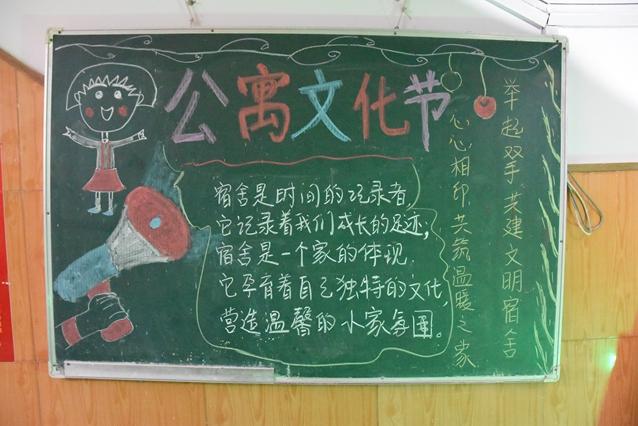 公寓文化节
宿舍是时间的记录者,
它记录着我们成长的足迹;
宿舍是一个家的体现.
它孕育着自己独特的文化,
营造温馨的小家氛围。
举起双手共建文明宿舍
心心相印共筑温暖之家